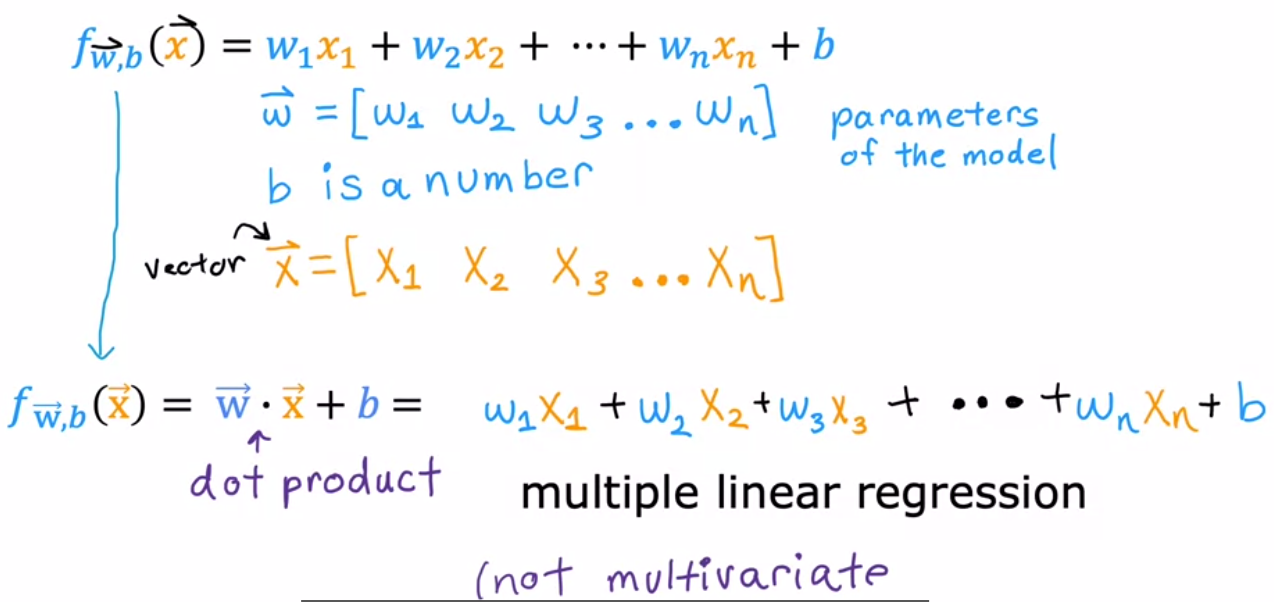 f_{\vec{w},b}(\vec{x}) = w₁x₁ + w₂x₂ + ⋯ + wₙxₙ + b
\vec{w} = [w₁ w₂ w₃ ... wₙ] parameters
of the model
b is a number
vector \vec{x} = [x₁ x₂ x₃ ... xₙ]
f_{\vec{w},b}(\vec{x}) = \vec{w} · \vec{x} + b = w₁x₁ + w₂x₂ + w₃x₃ + ... + wₙxₙ + b
dot product
multiple linear regression
(not multivariate